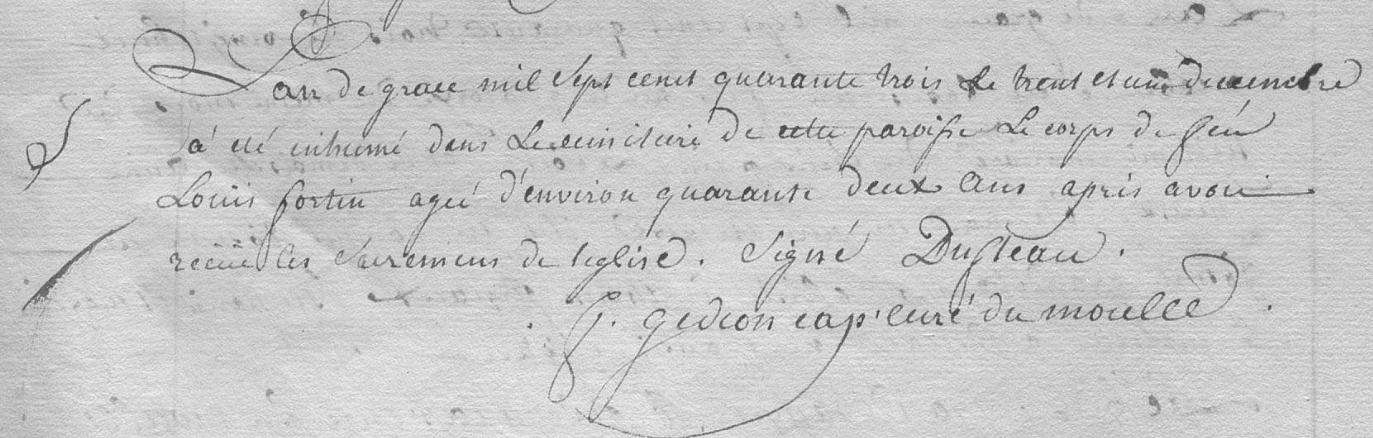 Lan de grace mil Sept cent quarante trois le trent et un decembre
a été inhumé dans Le cimitiere de cette paroisse Le corps de feu
Louis fortin ageé d'environ quarante deux ans apres avoir
reçüe les Sacremens de leglise. Signé Dusleau.
f. gedeon cap. Curé du moulle.